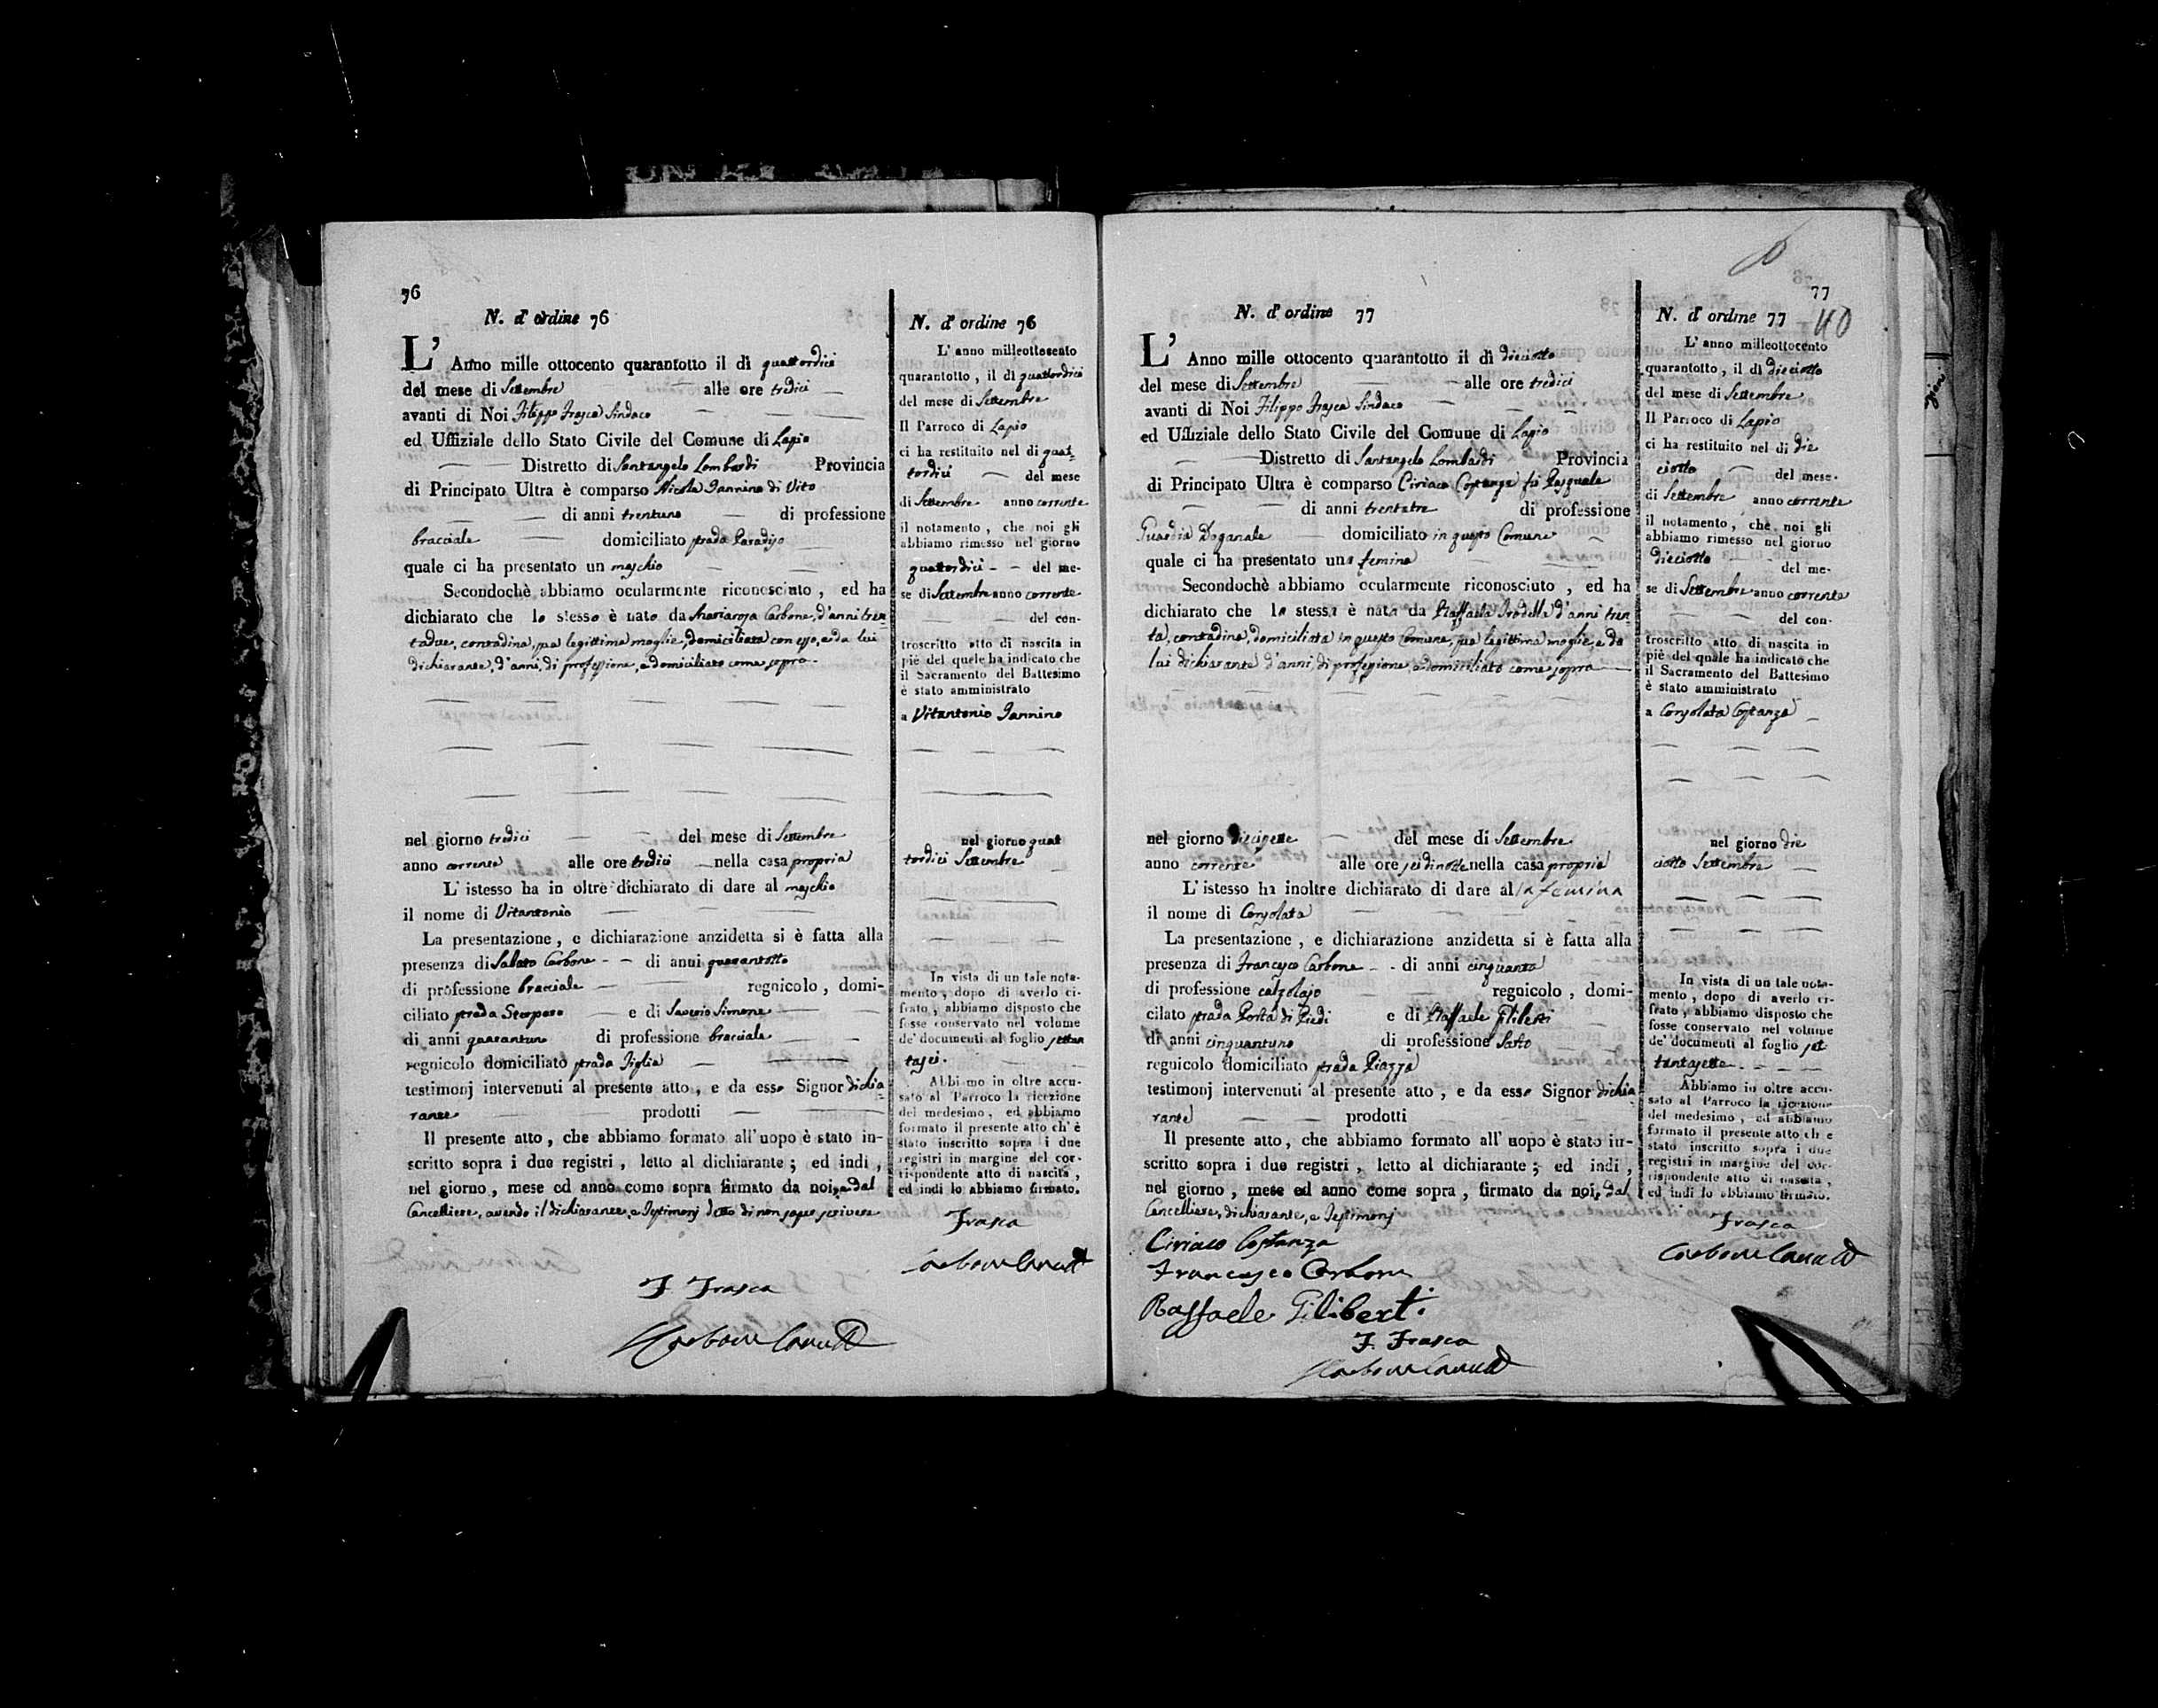 76
N. d' ordine 76
L' Anno mille ottocento quarantotto il dì quattordici
del mese di Settembre alle ore tredici
avanti di Noi Filippo Frasca Sindaco
ed Uffiziale dello Stato Civile del Comune di Lapio
Distretto di Santangelo Lombardi Provincia
di Principato Ultra è comparso Nicola Iannino di Vito
di anni trentuno di professione
bracciale domiciliato strada Paradiso
quale ci ha presentato un maschio
Secondochè abbiamo ocularmente riconosciuto, ed ha
dichiarato che lo stesso è nato da Mariarosa Carbone, d'anni tren-
tadue, contadina, sua legittima moglie, domiciliata con esso, e da lui
dichiarante, d'anni, di professione, e domiciliato come sopra
nel giorno tredici del mese di Settembre
anno corrente alle ore tredici nella casa propria
L' istesso ha in oltre dichiarato di dare al maschio
il nome di Vitantonio
La presentazione, e dichiarazione anzidetta si è fatta alla
presenza di Sabato Carbone di anni quarantotto
di professione bracciale regnicolo, domi-
ciliato strada e di Saverio Simone
di anni quarantuno di professione bracciale
regnicolo domiciliato strada
testimonj intervenuti al presente atto, e da esso Signor dichia-
rante prodotti
Il presente atto, che abbiamo formato all'uopo è stato in-
scritto sopra i due registri, letto al dichiarante; ed indi,
nel giorno, mese ed anno come sopra firmato da noi, e dal
Cancelliere, avendo il dichiarante, e Testimonj detto di non saper scrivere
F. Frasca
Carbone Canc
N. d' ordine 76
L' anno milleottocento
quarantotto, il dì quattordici
del mese di Settembre
Il Parroco di Lapio
ci ha restituito nel di quat-
tordici del mese
di Settembre anno corrente
il notamento, che noi gli
abbiamo rimesso nel giorno
quattordici del me-
se di Settembre anno corrente
del con-
troscritto atto di nascita in
piè del quele ha indicato che
il Sacramento del Battesimo
è stato amministrato
a Vitantonio Iannino
nel giorno quat
tordici Settembre
In vista di un tale nota-
mento, dopo di averlo ci-
frato, abbiamo disposto che
fosse conservato nel volume
de' documenti al foglio settan
tasei.
Abbiamo in oltre accu-
sato al Parroco la ricezione
del medesimo, ed abbiamo
formato il presente atto ch' è
stato inscritto sopra i due
registri in margine del cor-
rispondente atto di nascita,
ed indi lo abbiamo firmato.
Frasca
Carbone Canc
77
40
N. d' ordine 77
L' Anno mille ottocento quarantotto il dì dieciotto
del mese di Settembre alle ore tredici
avanti di Noi Filippo Frasca Sindaco
ed Uffiziale dello Stato Civile del Comune di Lapio
Distretto di Santangelo Lombardi Provincia
di Principato Ultra è comparso Ciriaco Costanza fu Pasquale
di anni trentatre di professione
Guardia Doganale domiciliato in questo Comune
quale ci ha presentato una femina
Secondochè abbiamo ocularmente riconosciuto, ed ha
dichiarato che la stessa è nata da Raffaela d'anni tren-
ta, contadina, domiciliata in questo Comune, sua legittima moglie, e da
lui dichiarante d'anni, di professione, e domiciliato come sopra
nel giorno diecisette del mese di Settembre
anno corrente alle ore nella casa propria
L' istesso ha inoltre dichiarato di dare alla femina
il nome di Consolata
La presentazione, e dichiarazione anzidetta si è fatta alla
presenza di Francesco Carbone di anni cinquanta
di professione calzolajo regnicolo, domi-
cilato strada Porta di Piedi e di Raffaele Filiberti
di anni cinquantuno di professione Sarto
regnicolo domiciliato strada Piazza
testimonj intervenuti al presente atto, e da esso Signor dichia-
rante prodotti
Il presente atto, che abbiamo formato all' uopo è stato in-
scritto sopra i due registri, letto al dichiarante; ed indi,
nel giorno, mese ed anno come sopra, firmato da noi, dal
Cancelliere, dichiarante, e Testimonj
Ciriaco Costanza
Francesco Carbone
Raffaele Filiberti
F. Frasca
Carbone Canc
N. d' ordine 77
L' anno milleottocento
quarantotto, il dì dieciotto
del mese di Settembre
Il Parroco di Lapio
ci ha restituito nel di die
ciotto del mese
di Settembre anno corrente
il notamento, che noi gli
abbiamo rimesso nel giorno
dieciotto del me-
se di Settembre anno corrente
del con-
troscritto atto di nascita in
piè del quale ha indicato che
il Sacramento del Battesimo
è stato amministrato
a Consolata Costanza
nel giorno die
ciotto Settembre
In vista di un tale nota-
mento, dopo di averlo ci-
frato, abbiamo disposto che
fosse conservato nel volume
de' documenti al foglio set
tantasette
Abbiamo in oltre accu-
sato al Parroco la ricezione
del medesimo, ed abbiamo
formato il presente atto ch' è
stato inscritto sopra i due
registri in margine del cor-
rispondente atto di nascita,
ed indi lo abbiamo firmato.
Frasca
Carbone Canc